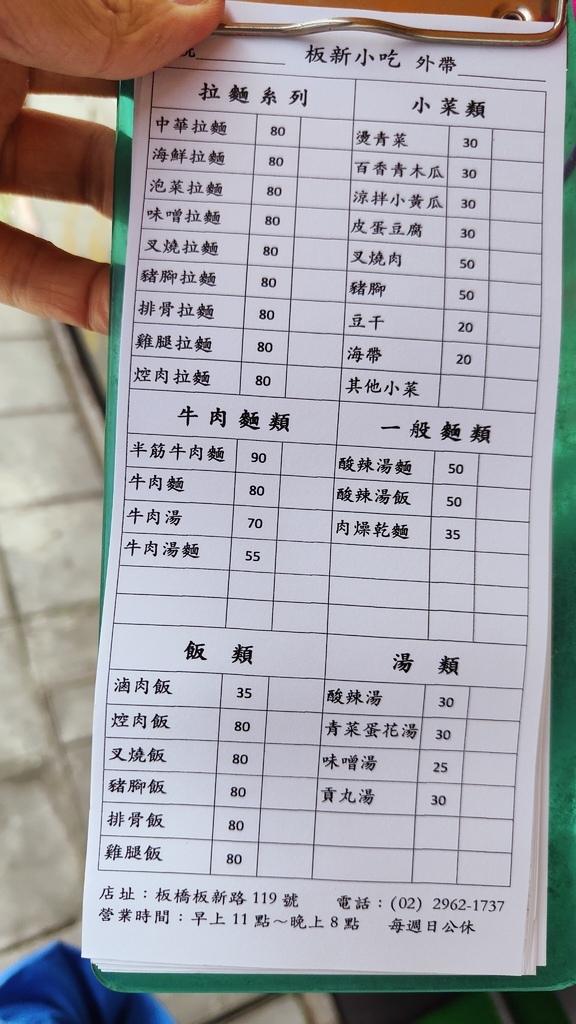 板新小吃 外帶
拉麵系列
中華拉麵 80
海鮮拉麵 80
泡菜拉麵 80
味噌拉麵 80
叉燒拉麵 80
豬腳拉麵 80
排骨拉麵 80
雞腿拉麵 80
焢肉拉麵 80
小菜類
燙青菜 30
百香青木瓜 30
涼拌小黃瓜 30
皮蛋豆腐 30
叉燒肉 50
豬腳 50
豆干 20
海帶 20
其他小菜
牛肉麵類
半筋牛肉麵 90
牛肉麵 80
牛肉湯 70
牛肉湯麵 55
一般麵類
酸辣湯麵 50
酸辣湯飯 50
肉燥乾麵 35
飯類
滷肉飯 35
焢肉飯 80
叉燒飯 80
豬腳飯 80
排骨飯 80
雞腿飯 80
湯類
酸辣湯 30
青菜蛋花湯 30
味噌湯 25
貢丸湯 30
店址：板橋板新路 119 號 電話：(02) 2962-1737
營業時間：早上 11 點～晚上 8 點 每週日公休